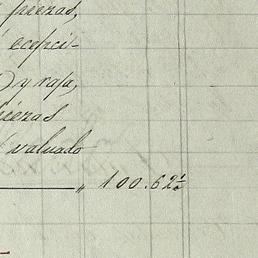 piezas,
ecepci-
) y raja,
piezas
valuado
" 100.62½